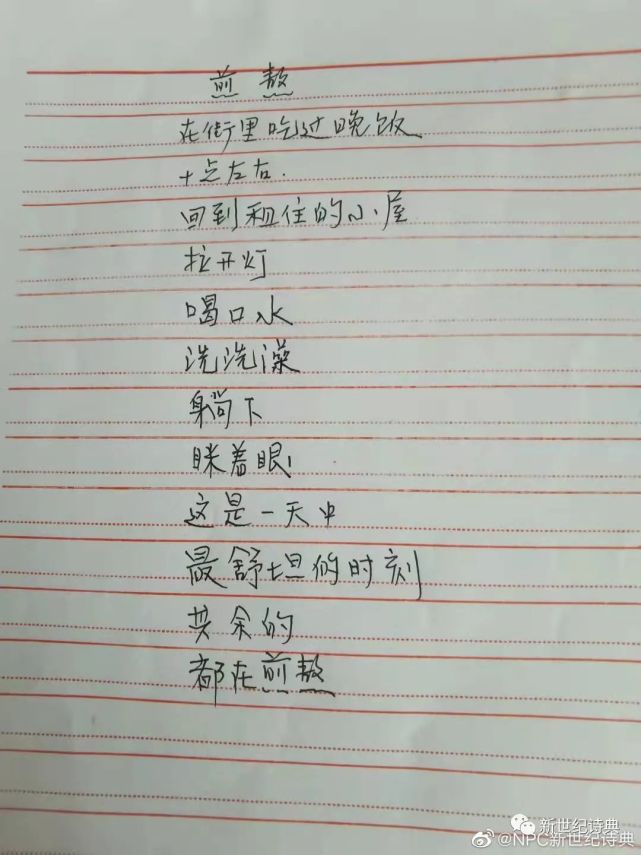 煎熬
在街里吃过晚饭
十点左右.
回到租住的小屋
拉开灯
喝口水
洗洗澡
躺下
眯着眼
这是一天中
最舒坦的时刻
其余的
都在煎熬
新世纪诗典
@NPC新世纪诗典